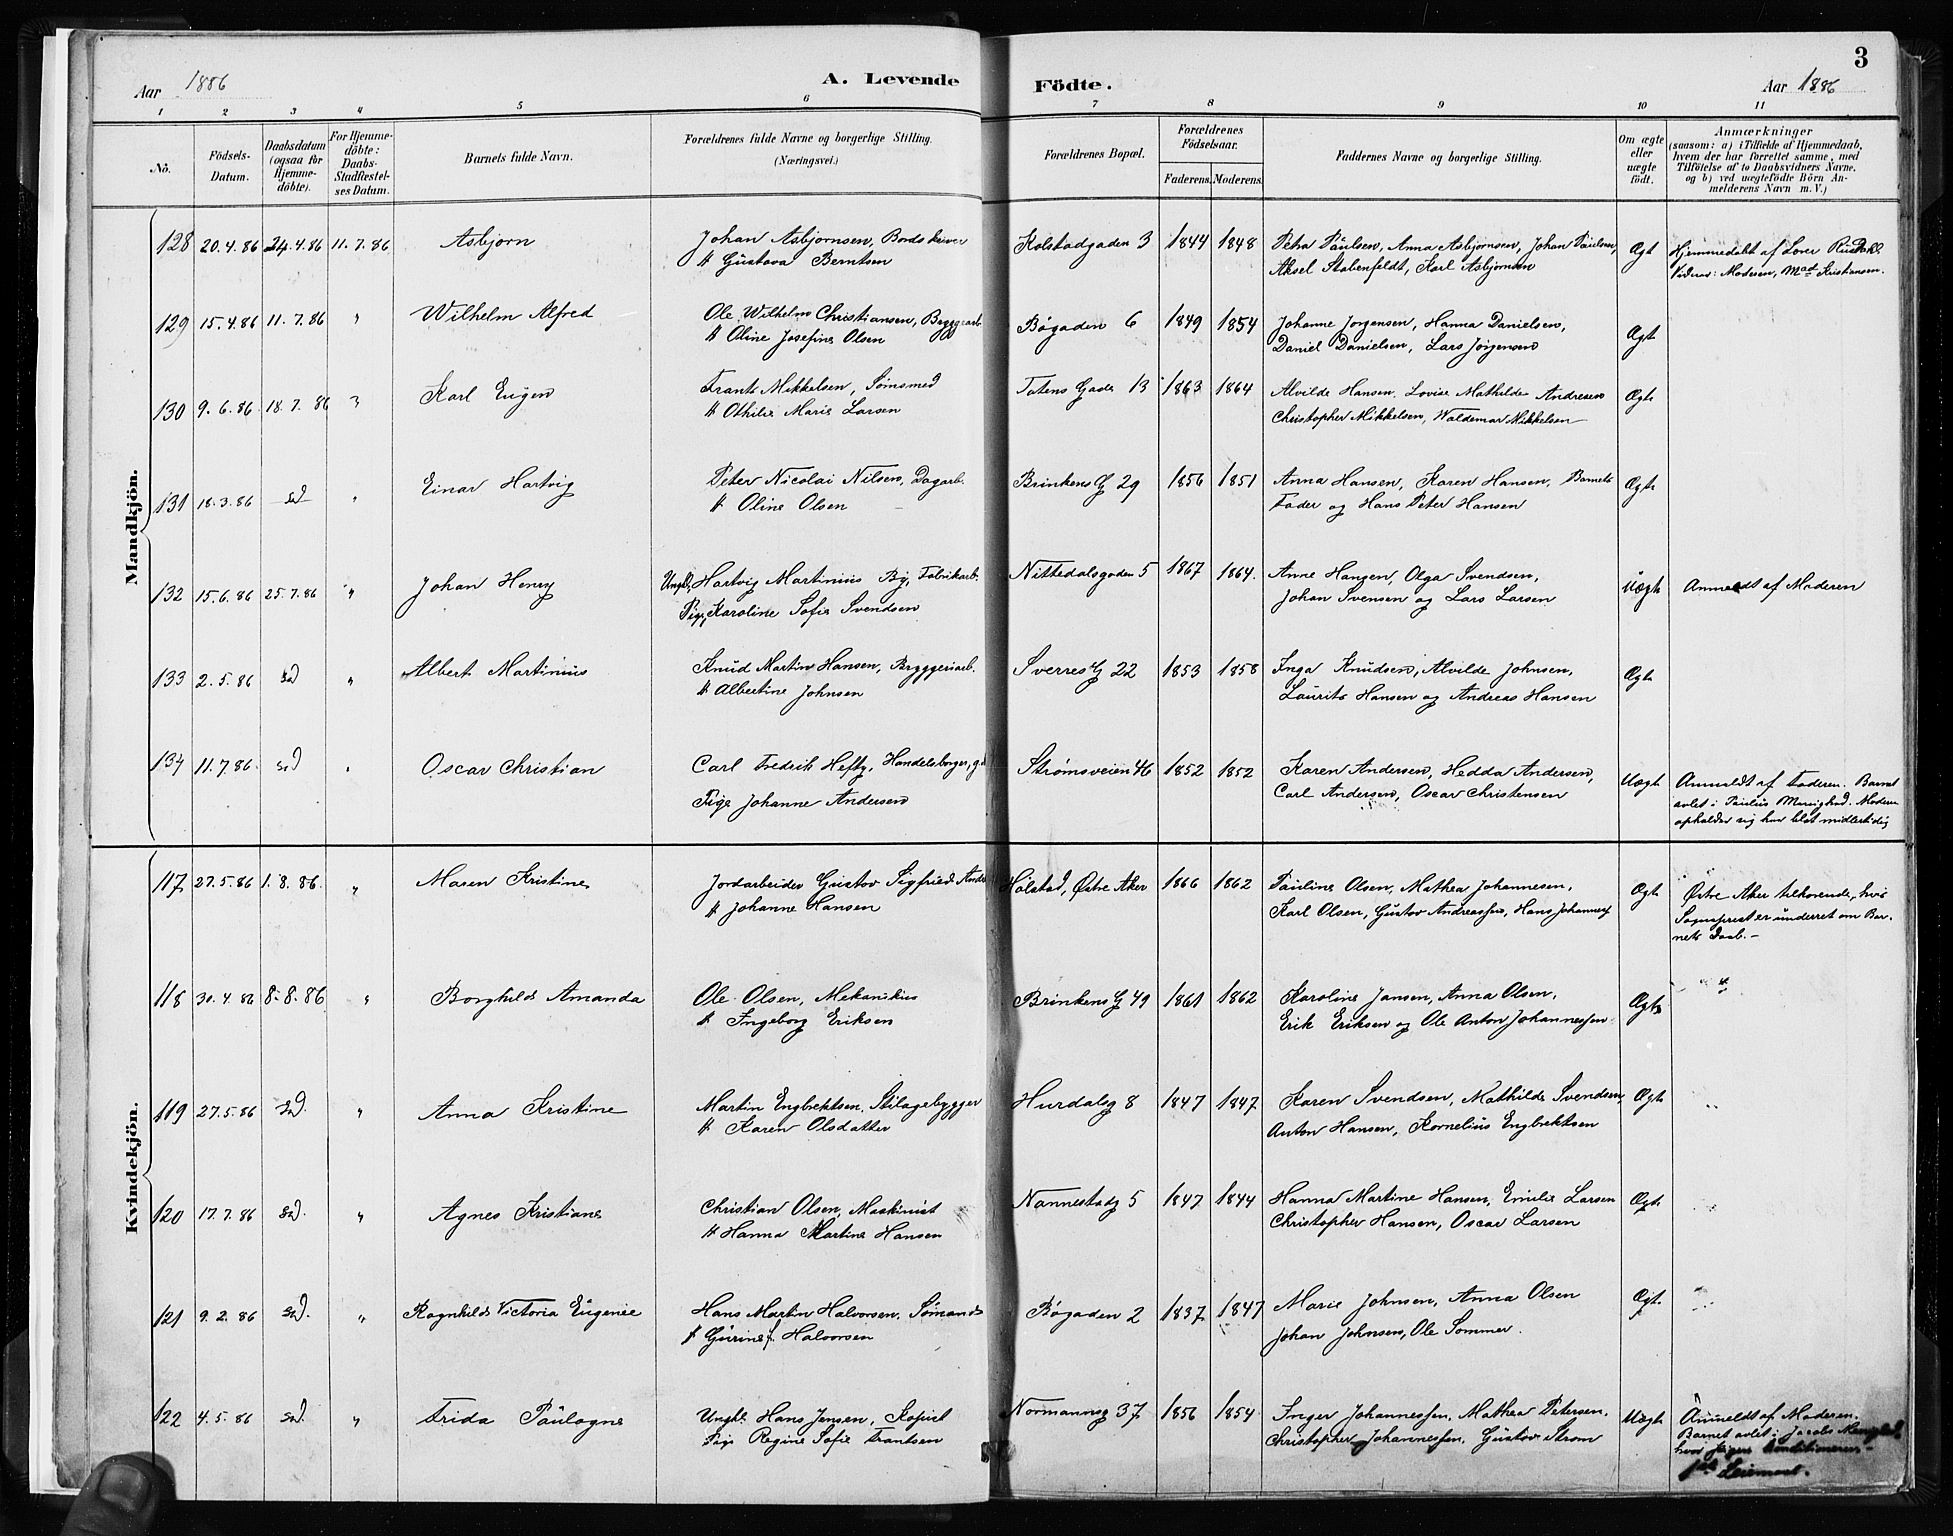 3
Aar 1886 A. Levende Födte. Aar 1886
1 2 3 4 5 6 7 8 9 10 11
No.
Födsels-Datum.
Daabsdatum (ogsaa for Hjemme-döbte).
For Hjemme-döbte: Daabs-Stadfæstel-ses Datum.
Barnets fulde Navn.
Forældrenes fulde Navne og borgerlige Stilling. (Næringsvei.)
Forældrenes Bopæl.
Forældrenes Födselsaar.
Faderens. Moderens.
Faddernes Navne og borgerlige Stilling.
Om ægte eller uægte födt.
Anmærkninger
(saasom: a) i Tilfælde af Hjemmedaab,
hvem der har forrettet samme, med
Tilföielse af to Daabsvidners Navne,
og b) ved uægtefödte Börn An-
melderens Navn m. V.)
Mandkjön.
128 20.4.86 24.4.86 11.7.86 Asbjørn Johan Asbjørnsen, Bordskriver Kolstadgaden 3 1844 1848 Petra Paulsen, Anna Asbjørnsen, Johan Paulsen, Ægt Hjemmedøbt af
H Gustava Berntsen Aksel Stabenfeldt, Karl Asbjørnsen Moderen, Kristiansen.
129 15.4.86 11.7.86 " Wilhelm Alfred Ole Wilhelm Christiansen, Bryggearb. Bøgaden 6 1849 1854 Johanne Jørgensen, Hanna Danielsen, Ægt
H Oline Josefine Olsen Daniel Danielsen, Lars Jørgensen
130 9.6.86 18.7.86 " Karl Eugen Frants Mikkelsen, Sømsmed Totens Gade 13 1863 1864 Alvilde Hansen, Lovise Mathilde Andresen Ægt
H Othilie Marie Larsen Christopher Mikkelsen, Waldemar Mikkelsen
131 18.3.86 sd " Einar Hartvig Peter Nicolai Nilsen, Dagarb. Brinkens G 29 1856 1851 Anna Hansen, Karen Hansen, Barnets Ægt
H Oline Olsen Fader og Hans Peter Hansen
132 15.6.86 25.7.86 " Johan Henry Ungk. Hartvig Martinius By, Fabrikarb. Nittedalsgaden 5 1867 1864. Anne Hansen, Olga Svendsen, Uægt Anmeldt af Moderen
Pige Karoline Sofie Svendsen Johan Svensen og Lars Larsen
133 2.5.86 sd " Albert Martinius Knud Martin Hansen, Bryggeriarb. Sverres G 22 1853 1858 Inga Knudsen, Alvilde Johnsen, Ægt
H Albertine Johnsen Laurits Hansen og Andreas Hansen
134 11.7.86. sd " Oscar Christian Carl Fredrik Hefty, Handelsborger, g. Strømsveien 46 1852 1852 Karen Andersen, Hedda Andersen, Uægt Anmeldt af Faderen. Barnet
Pige Johanne Andersen Carl Andersen, Oscar Christensen avlet i Paulus Menighed. Moderen
opholder sig her blot midlertidig
Kvindekjön.
117 27.5.86 1.8.86. " Maren Kristine Jordarbeider Gustav Sigfried Østre Aker 1866 1862 Pauline Olsen, Mathea Johannesen, Ægt Østre Aker tilhørende, hvis
H Johanne Hansen Karl Olsen, Gustav Andreassen, Hans Johannes Sognepræst er underret om Bar-
nets Daab.-
118 30.4.86 8.8.86 " Borghild Amanda Ole Olsen, Mekanikus Brinkens G 49 1861 1862 Karoline Jansen, Anna Olsen, Ægt "
H Ingeborg Eriksen Erik Eriksen og Ole Anton Johannessen
119 27.5.86 sd. " Anna Kristine Martin Engbrektsen, Stilagebygger Hurdalsg 8 1847 1847 Karen Svendsen, Mathilde Svendsen, Ægt
H Karen Olsdatter Anton Hansen, Kornelius Engbrektsen
120 17.7.86 sd. " Agnes Kristiane Christian Olsen, Maskinist Nannestadg 5 1847 1844 Hanna Martine Hansen, Emilie Larsen Ægt
H Hanna Martine Hansen Christopher Hansen, Oscar Larsen
121 9.2.86 sd. " Ragnhild Victoria Eugenie Hans Martin Halvorsen, Sømand Bøgaden 2 1837 1847 Marie Johnsen, Anna Olsen Ægt.
H Gurine Halvorsen Johan Johnsen, Ole Sommer.
122 4.5.86 sd. " Frida Paulagne Ungk. Hans Jensen, Kopist Normannsg 37 1856 1854 Inger Johannessen, Mathea Petersen, Uægt Anmeldt af Moderen.
Pige Regine Sofie Frantsen Christopher Johannessen, Gustav Strøm Barnet avlet i Jacobs
hvor Pigen konditionerer-
1ste Leiermaal.